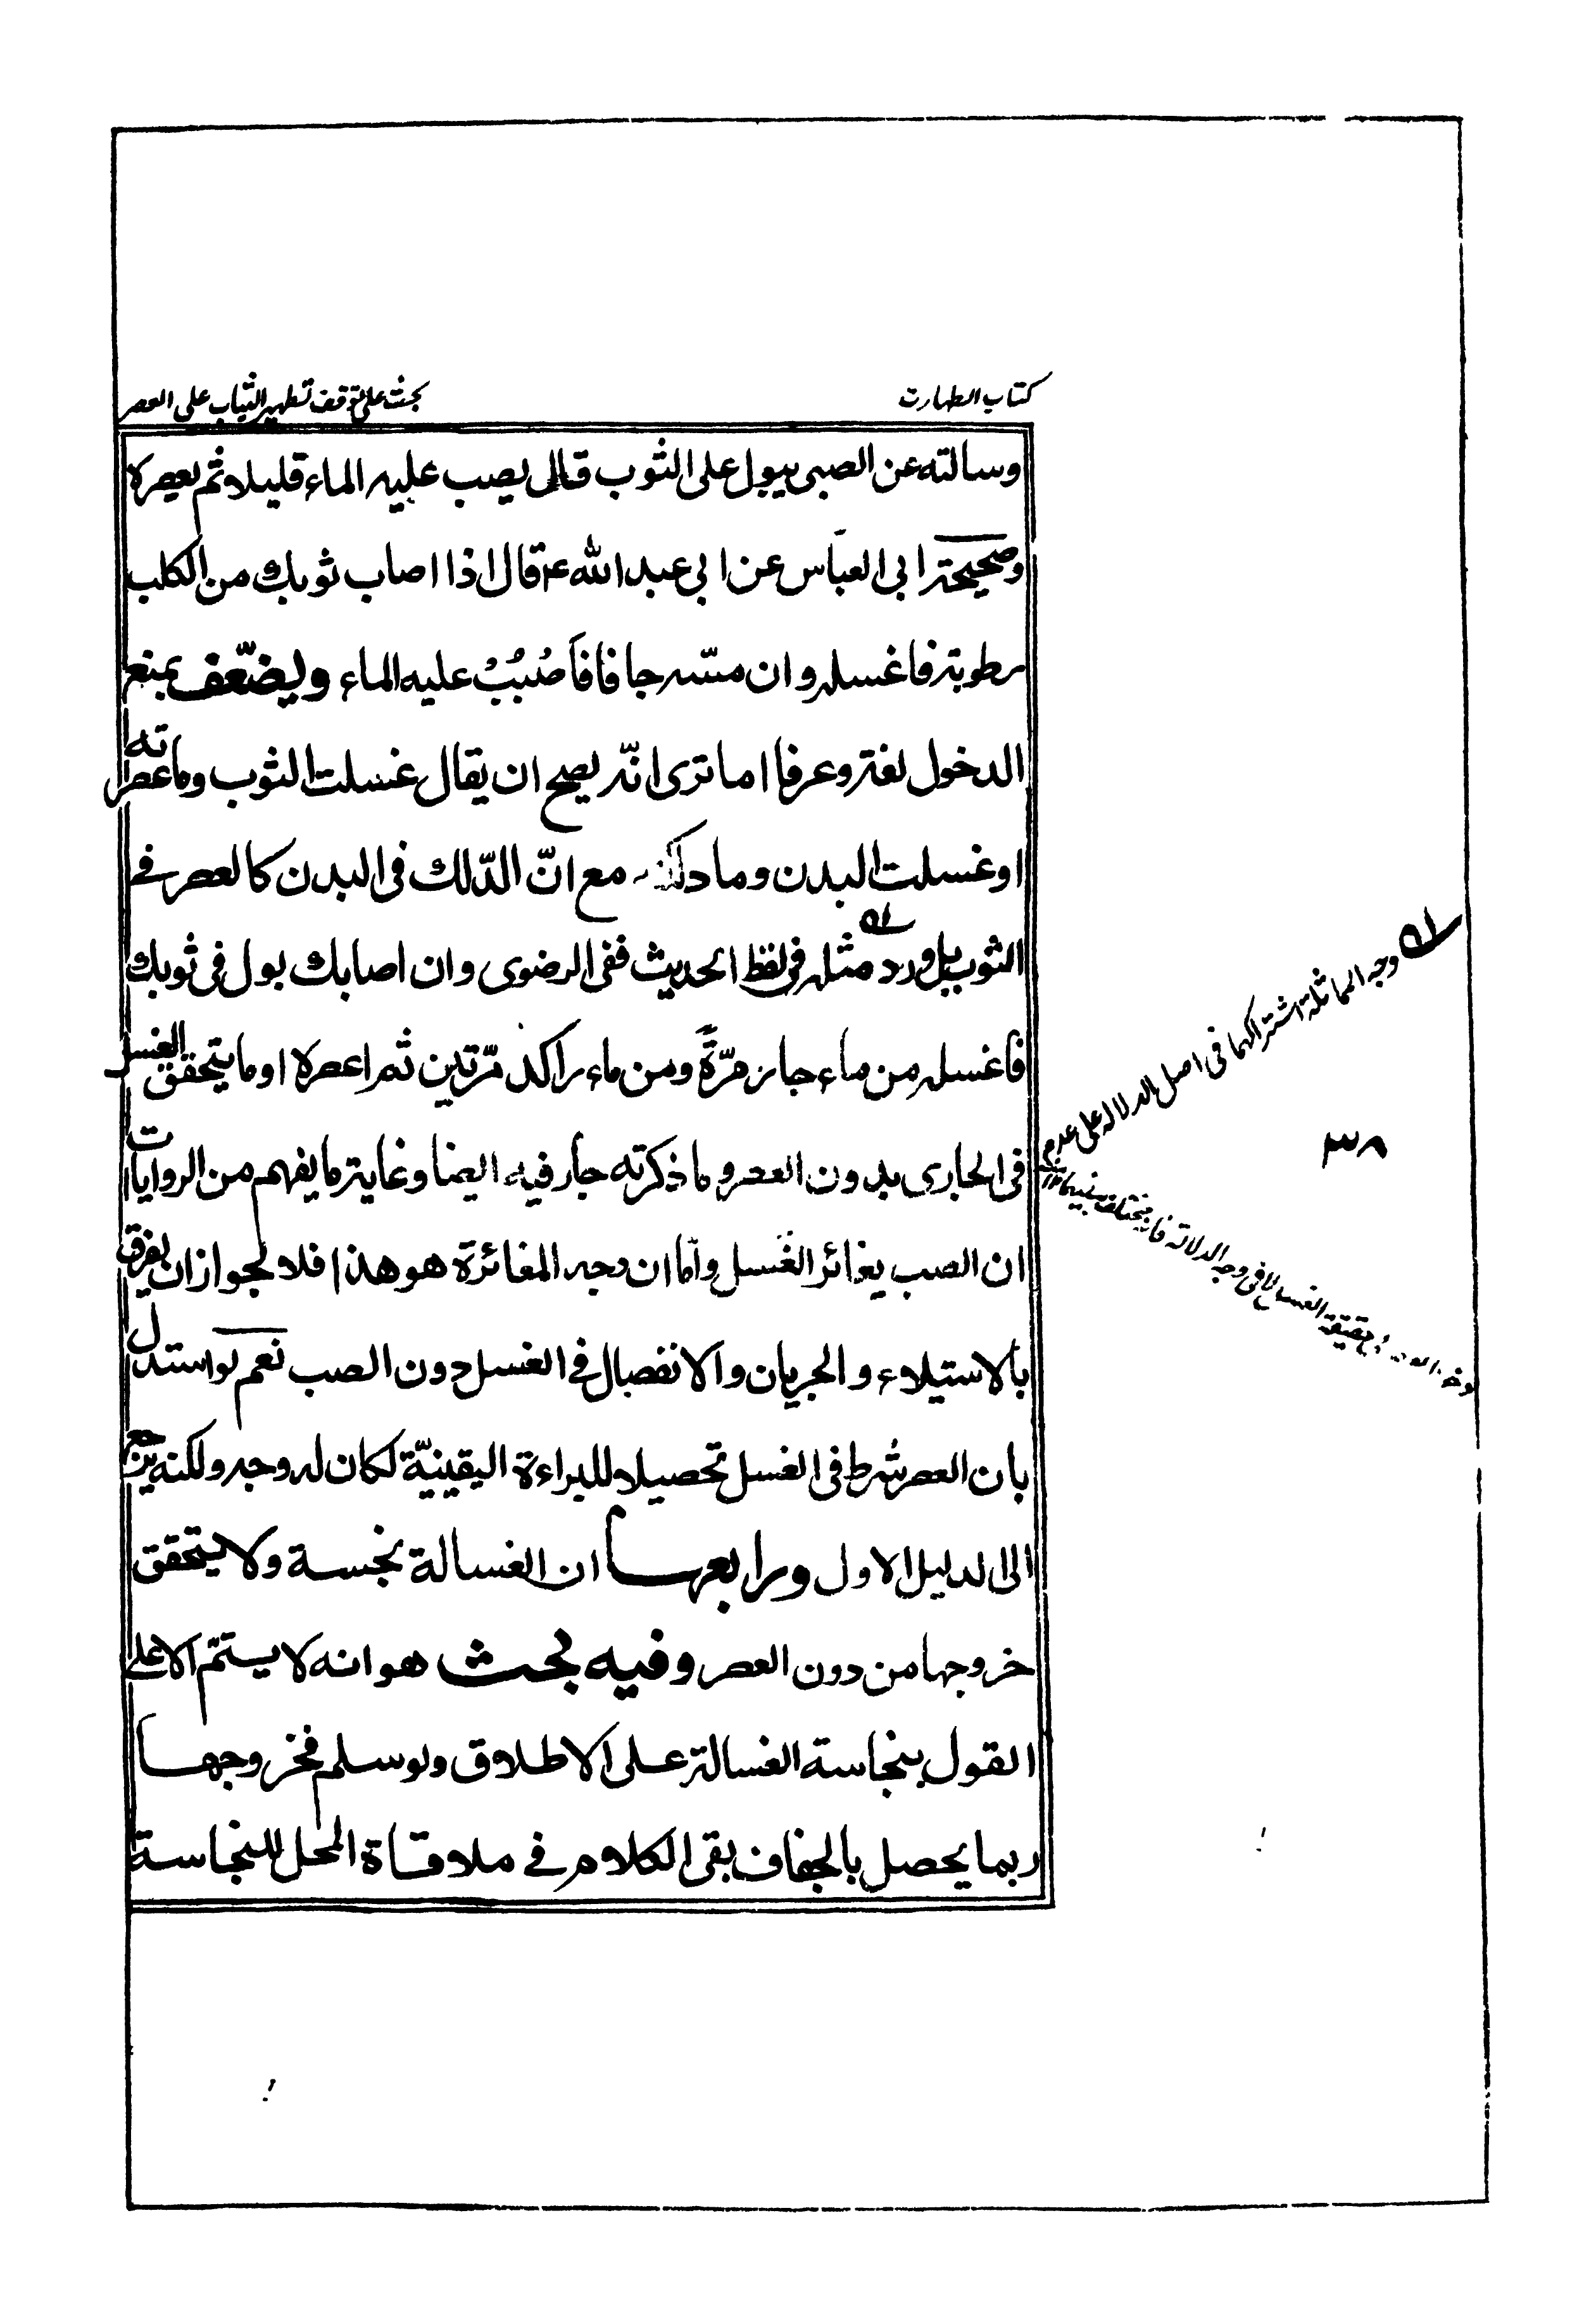 كتاب الطهارت
بحث على توقف تطهير الثياب على العصر
وسالته عن الصبى يبول على الثوب قال يصب عليه الماء قليلا ثم يعصره
وصحيحة ابى العبّاس عن ابى عبد الله ع قال اذا اصاب ثوبك من الكلب
رطوبة فاغسله وان مسّه جافا فَاصْبُبْ عليه الماء ويضعّف بمنع
الدخول لغة وعرفا اما ترى انّه يصح ان يقال غسلت الثوب وما عصرته
او غسلت البدن وما دلكته مع انّ الدّلك فى البدن كالعصر فى
الثوب بل ورد مثله فى لفظ الحديث ففى الرضوى وان اصابك بول فى ثوبك
فاغسله من ماء جار مرّةً ومن ماء راكد مرّتين ثم اعصره او ما يتحقق الغسل
فى الجارى بدون العصر وما ذكرته جار فيه ايضا وغاية ما يفهم من الروايات
ان الصب يغائر الغَسل وامّا ان وجه المغائرة هو هذا فلا لجواز ان يفرق
بالاستيلاء والجريان والانفصال فى الغسل دون الصب نعم لو استدل
بان العصر شرط فى الغسل تحصيلا للبراءة اليقينيّة لكان له وجه ولكنه يرجع
الى الدليل الاول ورابعها ان الغسالة نجسة ولا يتحقق
خروجها من دون العصر وفيه بحث هو انه لا يستتم الا على
القول بنجاسة الغسالة على الاطلاق ولو سلم فخروجها
ربما يحصل بالجفاف بقى الكلام فى ملاقاة المحل للنجاسة
وجه المماثلة اشتراكهما فى اصل الدلالة على عدم
حقيقة الغسل لا فى وجه الدلالة فانه مختلف بينهما ١٢
٣٨